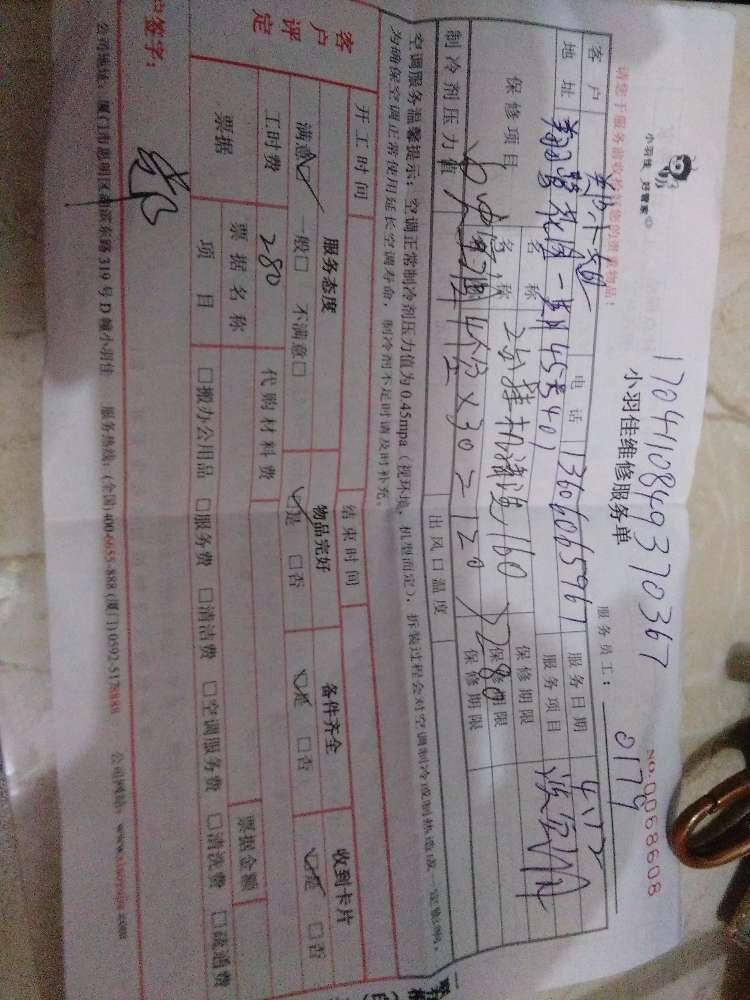 小羽佳 好管家
17041108490370367
小羽佳维修服务单
NO.0068608
请您于服务前收拾好您的贵重物品!
服务员工: 0179
客户 郑小姐 电话 13606065967 服务日期 4.12
地址 翔鹭花城一期45号401 服务项目 洗空调
保修项目 名称 2台挂机清洗160 保修期限
名称 保修期限
280
加雪种4个压×30=120 保修期限
制冷剂压力值 出风口温度
空调服务温馨提示:空调正常制冷剂压力值为0.45mpa(视环境,机型而定),拆装过程会对空调制冷或制热造成一定影响,
为确保空调正常使用延长空调寿命,制冷剂不足时请及时补充。
开工时间 结束时间
客户评定 服务态度 物品完好 备件齐全 收到卡片
满意☑ 一般□ 不满意□ ☑是 □否 ☑是 □否 ☑是 □否
工时费 280 代购材料费
票据 票据名称 票据金额
项目 □搬办公用品 □服务费 □清洁费 □空调服务费 □清洗费 □疏通费
户签字: 郑
公司地址:厦门市思明区湖滨东路319号D幢小羽佳 服务热线:(全国)400-6655-888 (厦门)0592-5178888 公司网站: